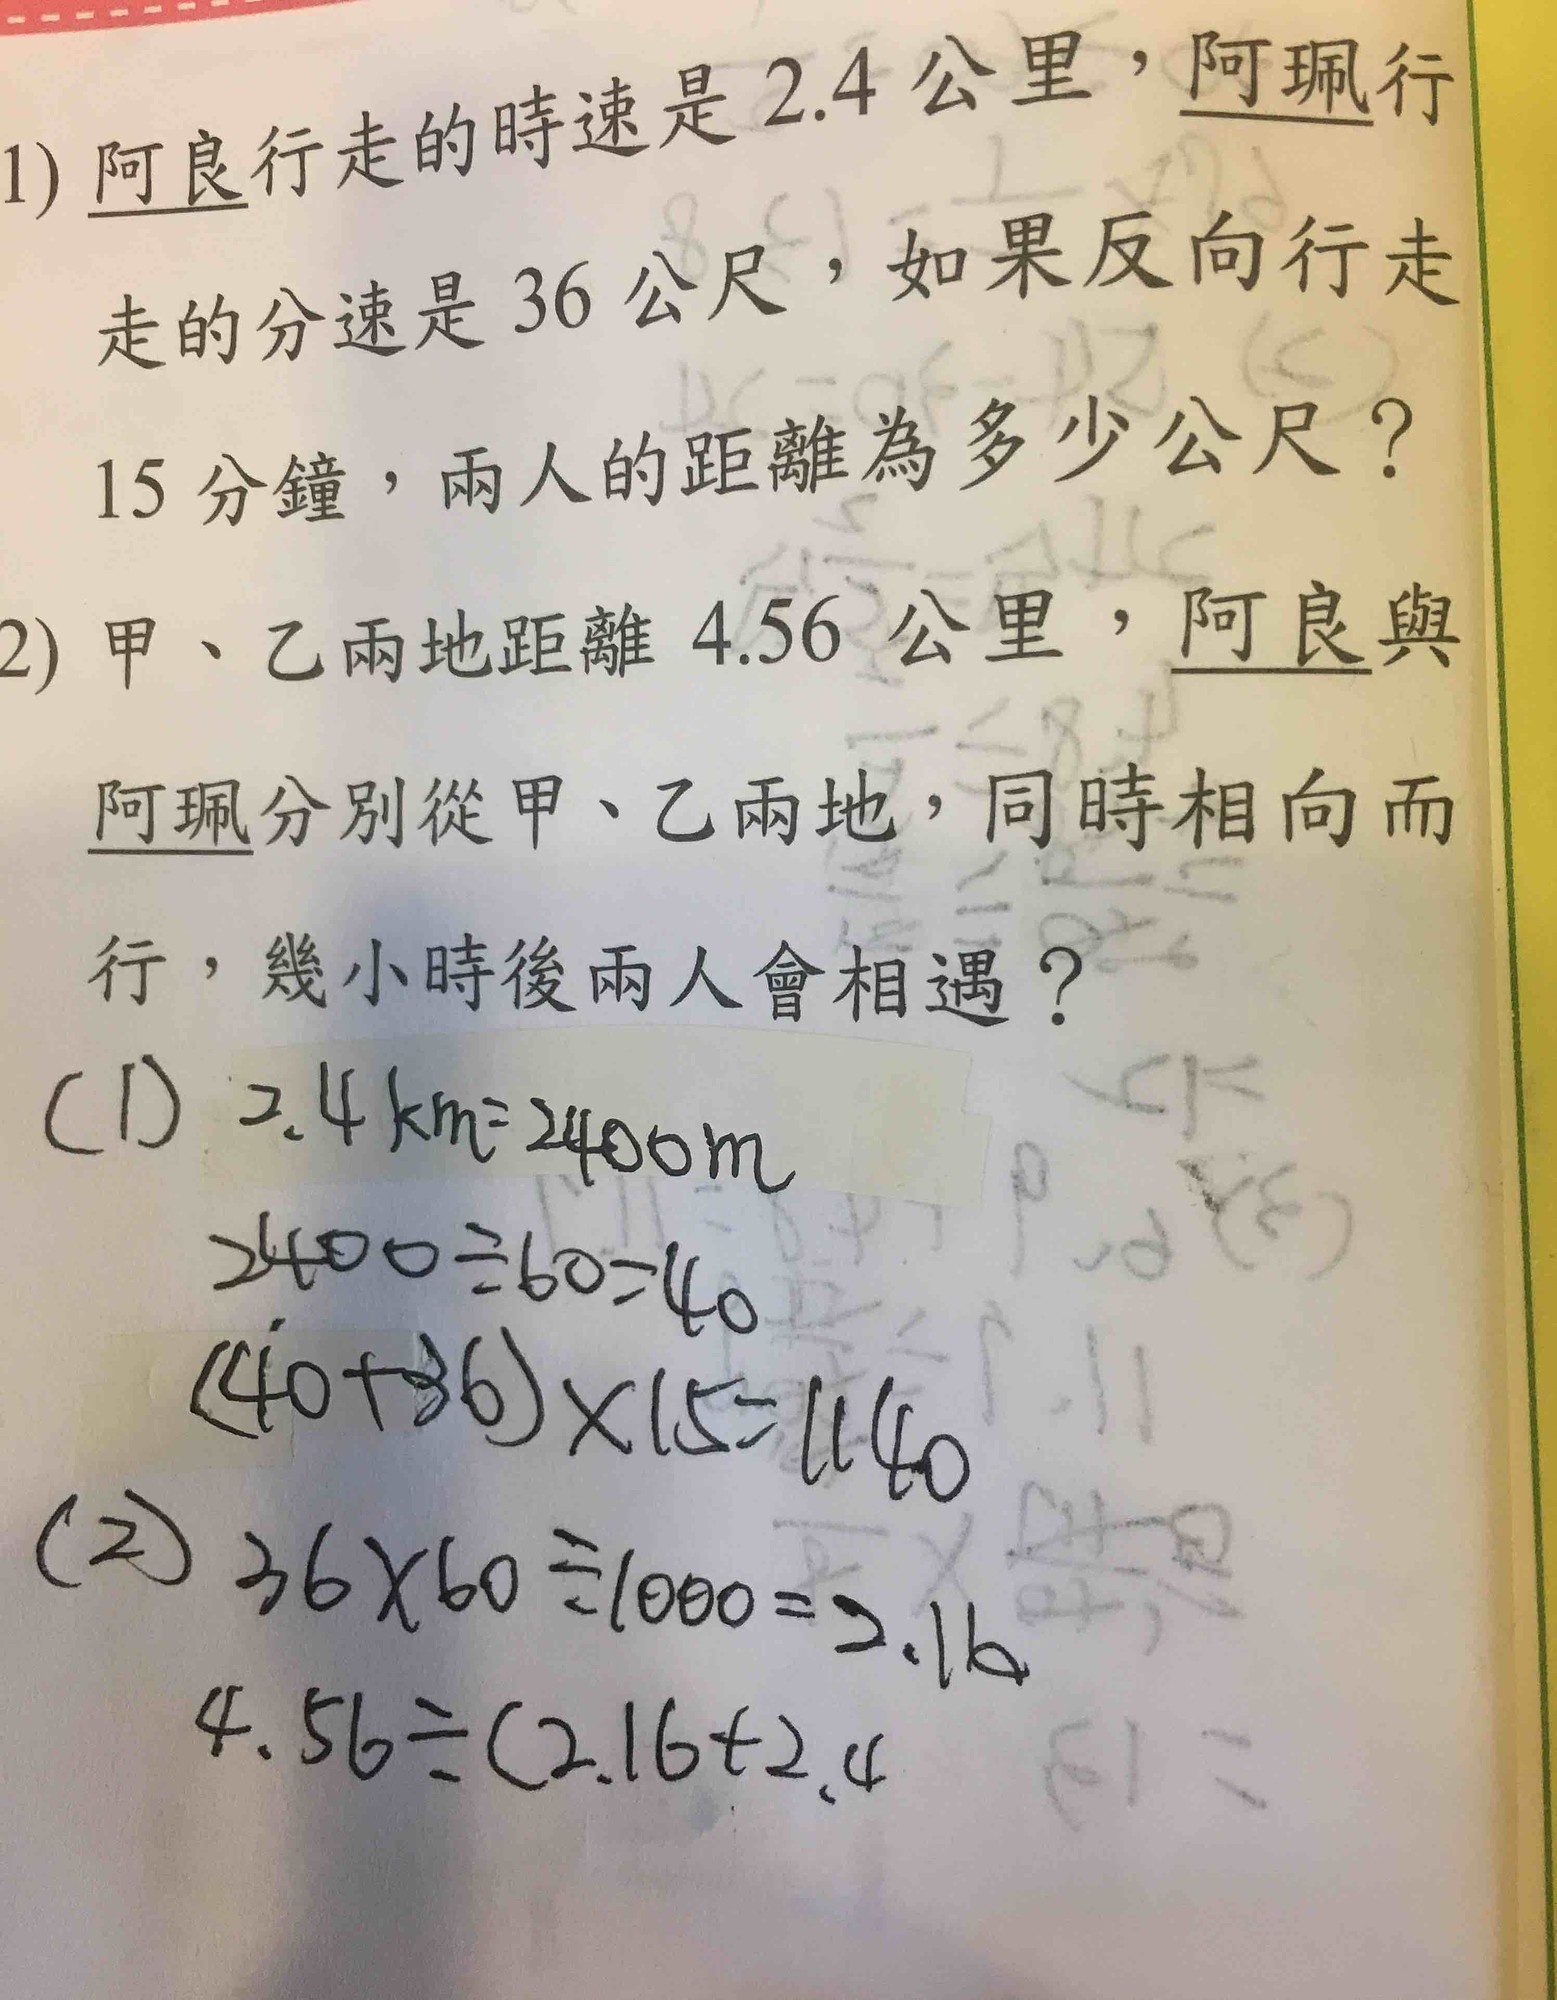 1) 阿良行走的時速是 2.4 公里，阿珮行
走的分速是 36 公尺，如果反向行走
15 分鐘，兩人的距離為多少公尺？
2) 甲、乙兩地距離 4.56 公里，阿良與
阿珮分別從甲、乙兩地，同時相向而
行，幾小時後兩人會相遇？
(1) 2.4km=2400m
2400÷60=40
(40+36)×15=1140
(2) 36×60÷1000=2.16
4.56÷(2.16+2.4